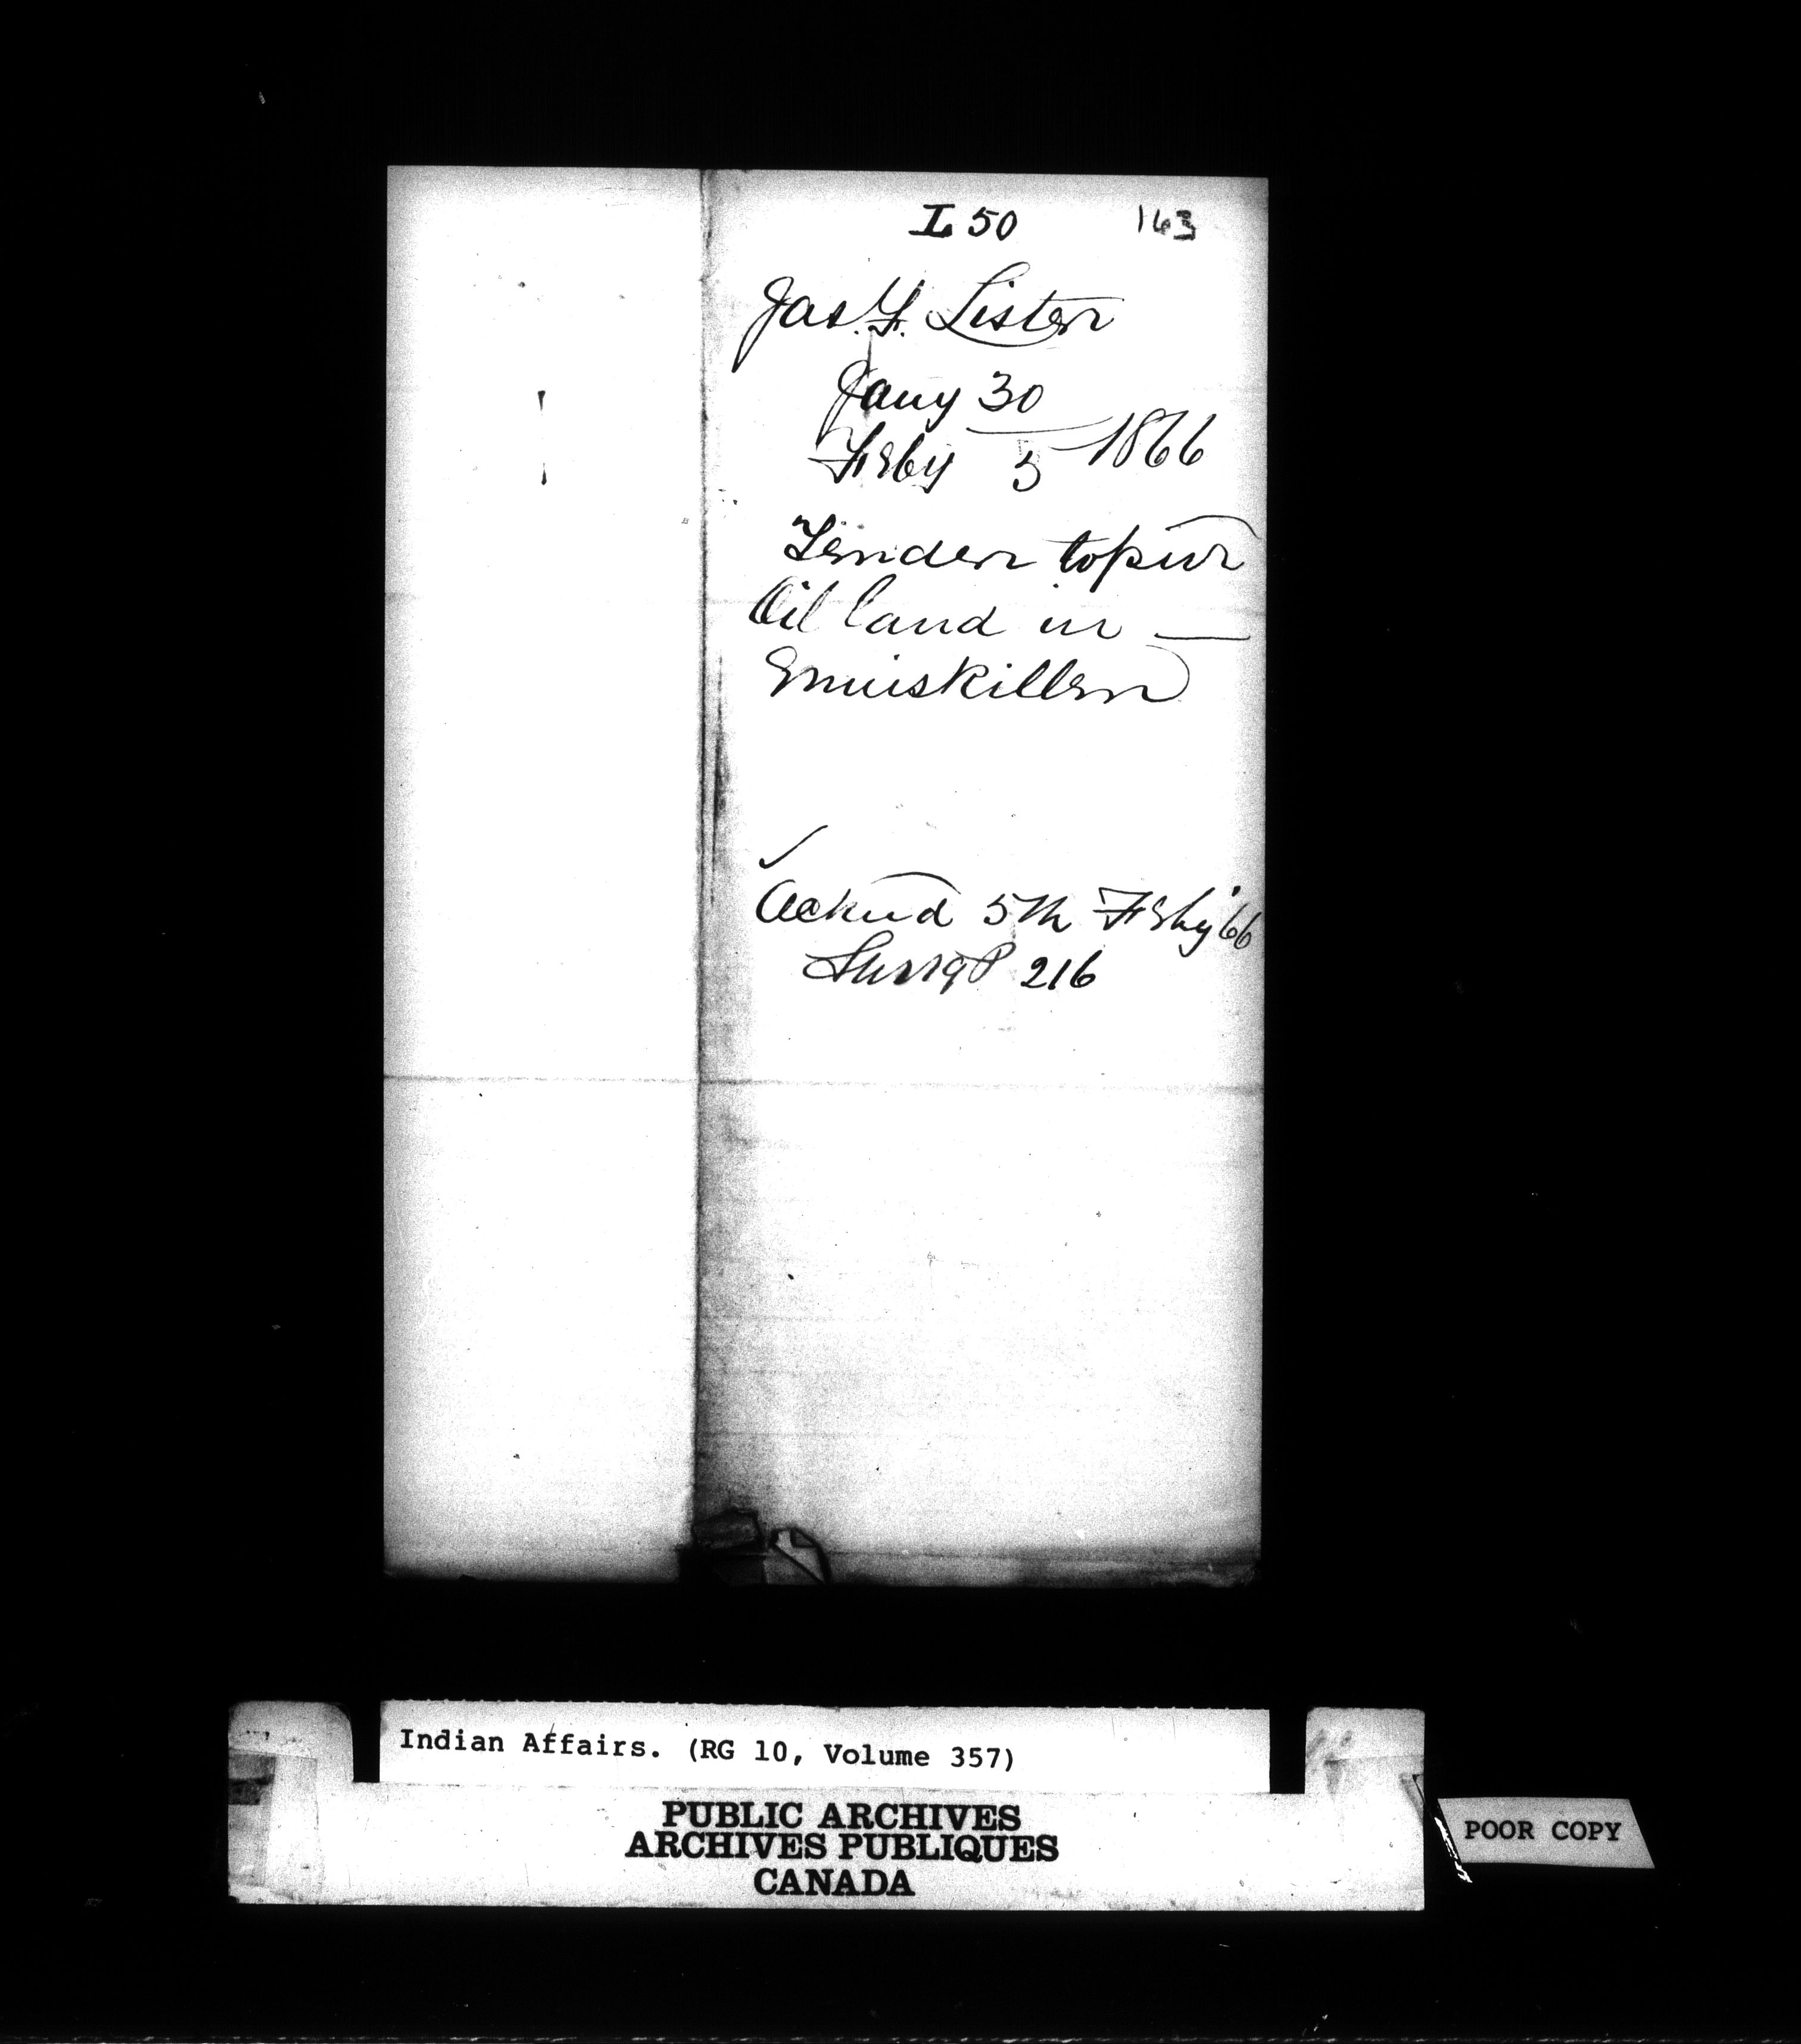 L 50 163
Jas. F. Lister
Jany 30
Feby 5 1866
Tender to pur
Oil land in —
Enniskillen
Acknd 5th Feby '66
P 216
Indian Affairs. (RG 10, Volume 357)
PUBLIC ARCHIVES
ARCHIVES PUBLIQUES
CANADA
POOR COPY